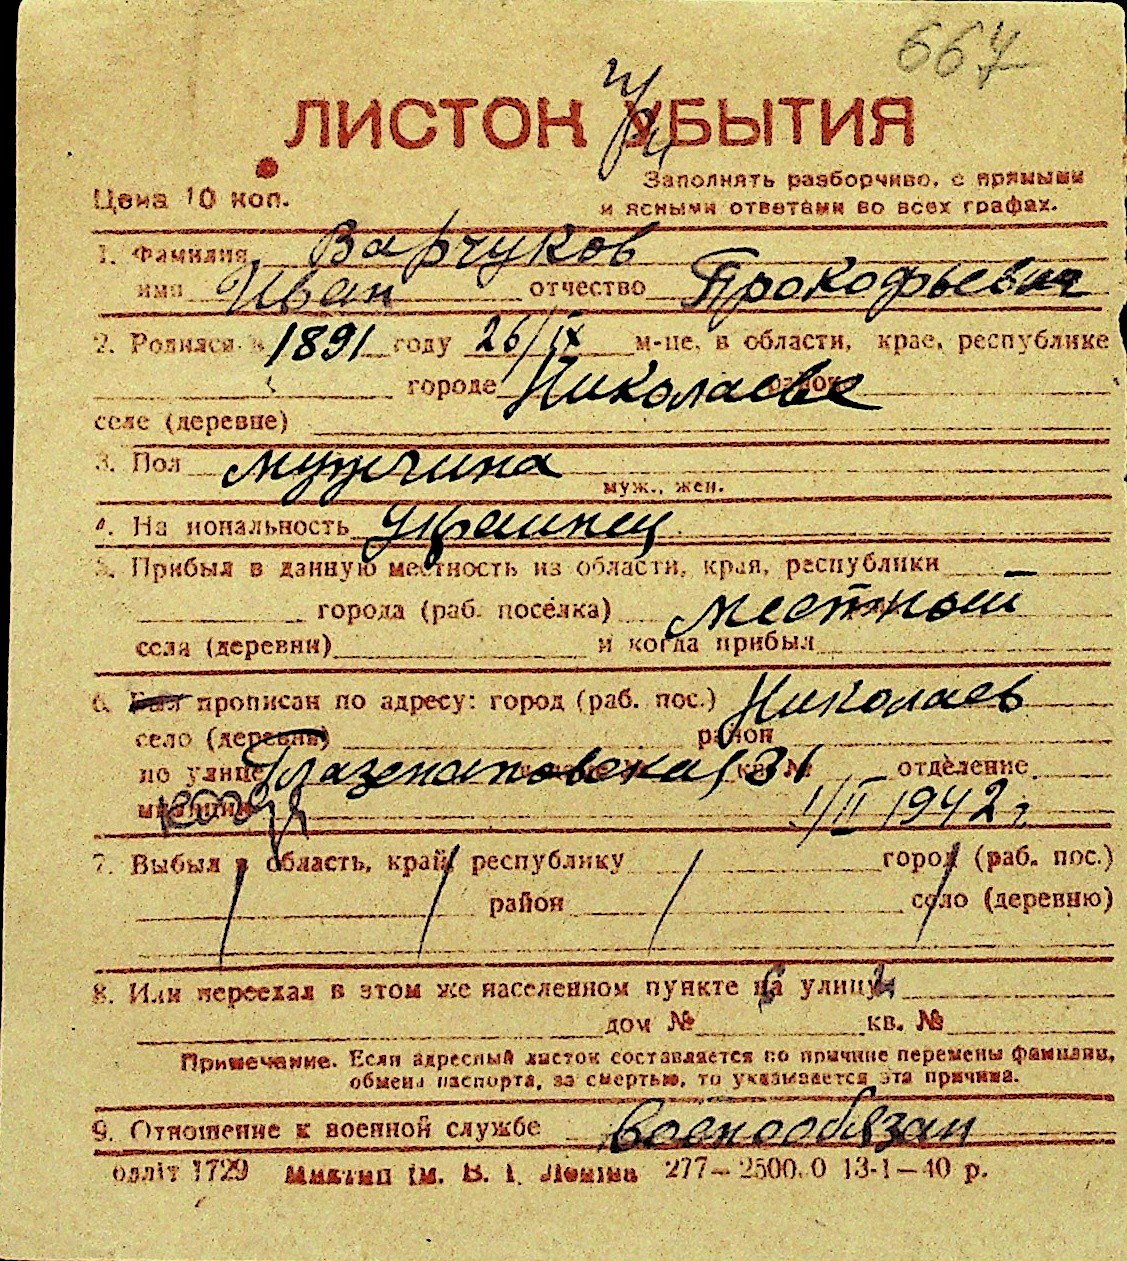 667
ЛИСТОК УБЫТИЯ
Цена 10 коп.
Заполнять разборчиво, с прямыми
и ясными ответами во всех графах.
1. Фамилия Варчуков
имя Иван отчество Прокофьевич
2. Родился в 1891 году 26/IX м-це, в области, крае, республике
городе Николаеве район
селе (деревне)
3. Пол мужчина
муж., жен.
4. Национальность украинец
5. Прибыл в данную местность из области, края, республики
города (раб. посёлка) местный
села (деревни) и когда прибыл
6. Был прописан по адресу: город (раб. пос.) Николаев
село (деревня) район
по улице Глазенаповская 31 кв. № отделение
милиции 1/II 1942 г.
7. Выбыл в область, край, республику город (раб. пос.)
район село (деревню)
8. Или переехал в этом же населенном пункте на улицу
дом № кв. №
Примечание. Если адресный листок составляется по причине перемены фамилии,
обмена паспорта, за смертью, то указывается эта причина.
9. Отношение к военной службе военнообязан
облліт 1729 Миктип ім. В. І. Леніна 277—2500.0 13-1—40 р.